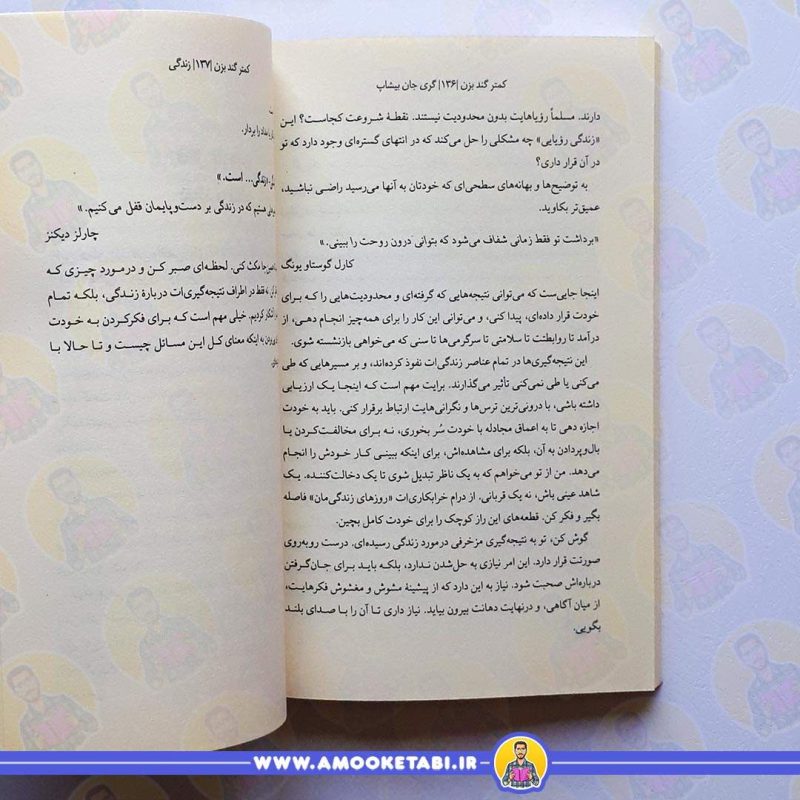 کمتر گند بزن |۱۳۶| گری جان بیشاپ
دارند. مسلماً رؤیاهایت بدون محدودیت نیستند. نقطهٔ شروعت کجاست؟ این
«زندگی رؤیایی» چه مشکلی را حل می‌کند که در انتهای گستره‌ای وجود دارد که تو
در آن قرار داری؟
به توضیح‌ها و بهانه‌های سطحی‌ای که خودتان به آنها می‌رسید راضی نباشید،
عمیق‌تر بکاوید.
«برداشت تو فقط زمانی شفاف می‌شود که بتوانی درون روحت را ببینی.»
کارل گوستاو یونگ
اینجا جایی‌ست که می‌توانی نتیجه‌هایی که گرفته‌ای و محدودیت‌هایی را که برای
خودت قرار داده‌ای، پیدا کنی، و می‌توانی این کار را برای همه‌چیز انجام دهی، از
درآمد تا روابطت تا سلامتی تا سرگرمی‌ها تا سنی که می‌خواهی بازنشسته شوی.
این نتیجه‌گیری‌ها در تمام عناصر زندگی‌ات نفوذ کرده‌اند، و بر مسیرهایی که طی
می‌کنی یا طی نمی‌کنی تأثیر می‌گذارند. برایت مهم است که اینجا یک ارزیابی
داشته باشی، با درونی‌ترین ترس‌ها و نگرانی‌هایت ارتباط برقرار کنی. باید به خودت
اجازه دهی تا به اعماق مجادله با خودت سُر بخوری، نه برای مخالفت‌کردن یا
بال‌وپردادن به آن، بلکه برای مشاهده‌اش، برای اینکه ببینی کار خودش را انجام
می‌دهد. من از تو می‌خواهم که به یک ناظر تبدیل شوی تا یک دخالت‌کننده. یک
شاهد عینی باش، نه یک قربانی. از درام خرابکاری‌ات «روزهای زندگی‌مان» فاصله
بگیر و فکر کن. قطعه‌های این راز کوچک را برای خودت کامل بچین.
گوش کن، تو به نتیجه‌گیری مزخرفی درمورد زندگی رسیده‌ای. درست روبه‌روی
صورتت قرار دارد. این امر نیازی به حل‌شدن ندارد، بلکه باید برای جان‌گرفتن
درباره‌اش صحبت شود. نیاز به این دارد که از پیشینهٔ مشوش و مغشوش فکرهایت،
از میان آگاهی، و درنهایت دهانت بیرون بیاید. نیاز داری تا آن را با صدای بلند
بگویی.
کمتر گند بزن |۱۳۷| زندگی
را بردار.
زندگی... است.»
هستیم که در زندگی بر دست‌وپایمان قفل می‌کنیم.»
چارلز دیکنز
مکث کنی. لحظه‌ای صبر کن و درمورد چیزی که
نه فقط در اطراف نتیجه‌گیری‌ات دربارهٔ زندگی، بلکه تمام
آشکار کردیم. خیلی مهم است که برای فکرکردن به خودت
به اینکه معنای کل این مسائل چیست و تا حالا با
WWW.AMOOKETABI.IR